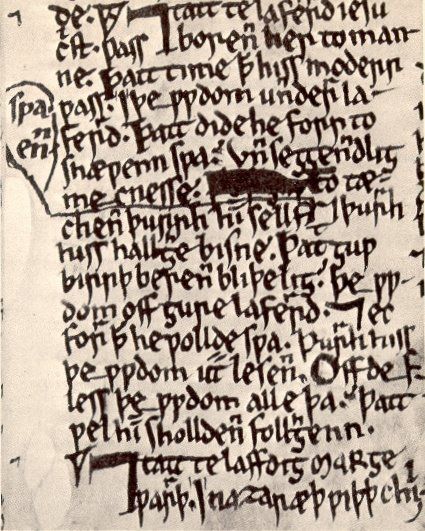 ꝺe. ⁊ tatt te laferrd iesu
crist. ƿass borenn her to man
ne. Þatt time þ hiss moderr
ƿass. I þe ƿƿdom unnderr la-
ferrd. Þatt dide he forr to
shæƿenn sƿa. Unnseggenndliȝ
mecnesse. ⁊ to tæ-
chenn þurrh himm sellf. ⁊ þurrh
hiss hallȝe bisne. Þatt ȝuƿ
birrþ berenn bliþeliȝ. þe ƿƿ-
dom off ȝure laferrd. ⁊ ec
forr þ he ƿollde sƿa. Þurrh hiss
þe ƿƿdom utt lesenn. Off de f-
less þe ƿƿdom alle þa. Þatt
ƿel himm sholldenn follȝhenn.
⁊ tatt te laffdiȝ Marȝe
ƿass. I nazaræþ ƿiþþ child
sƿa
enn